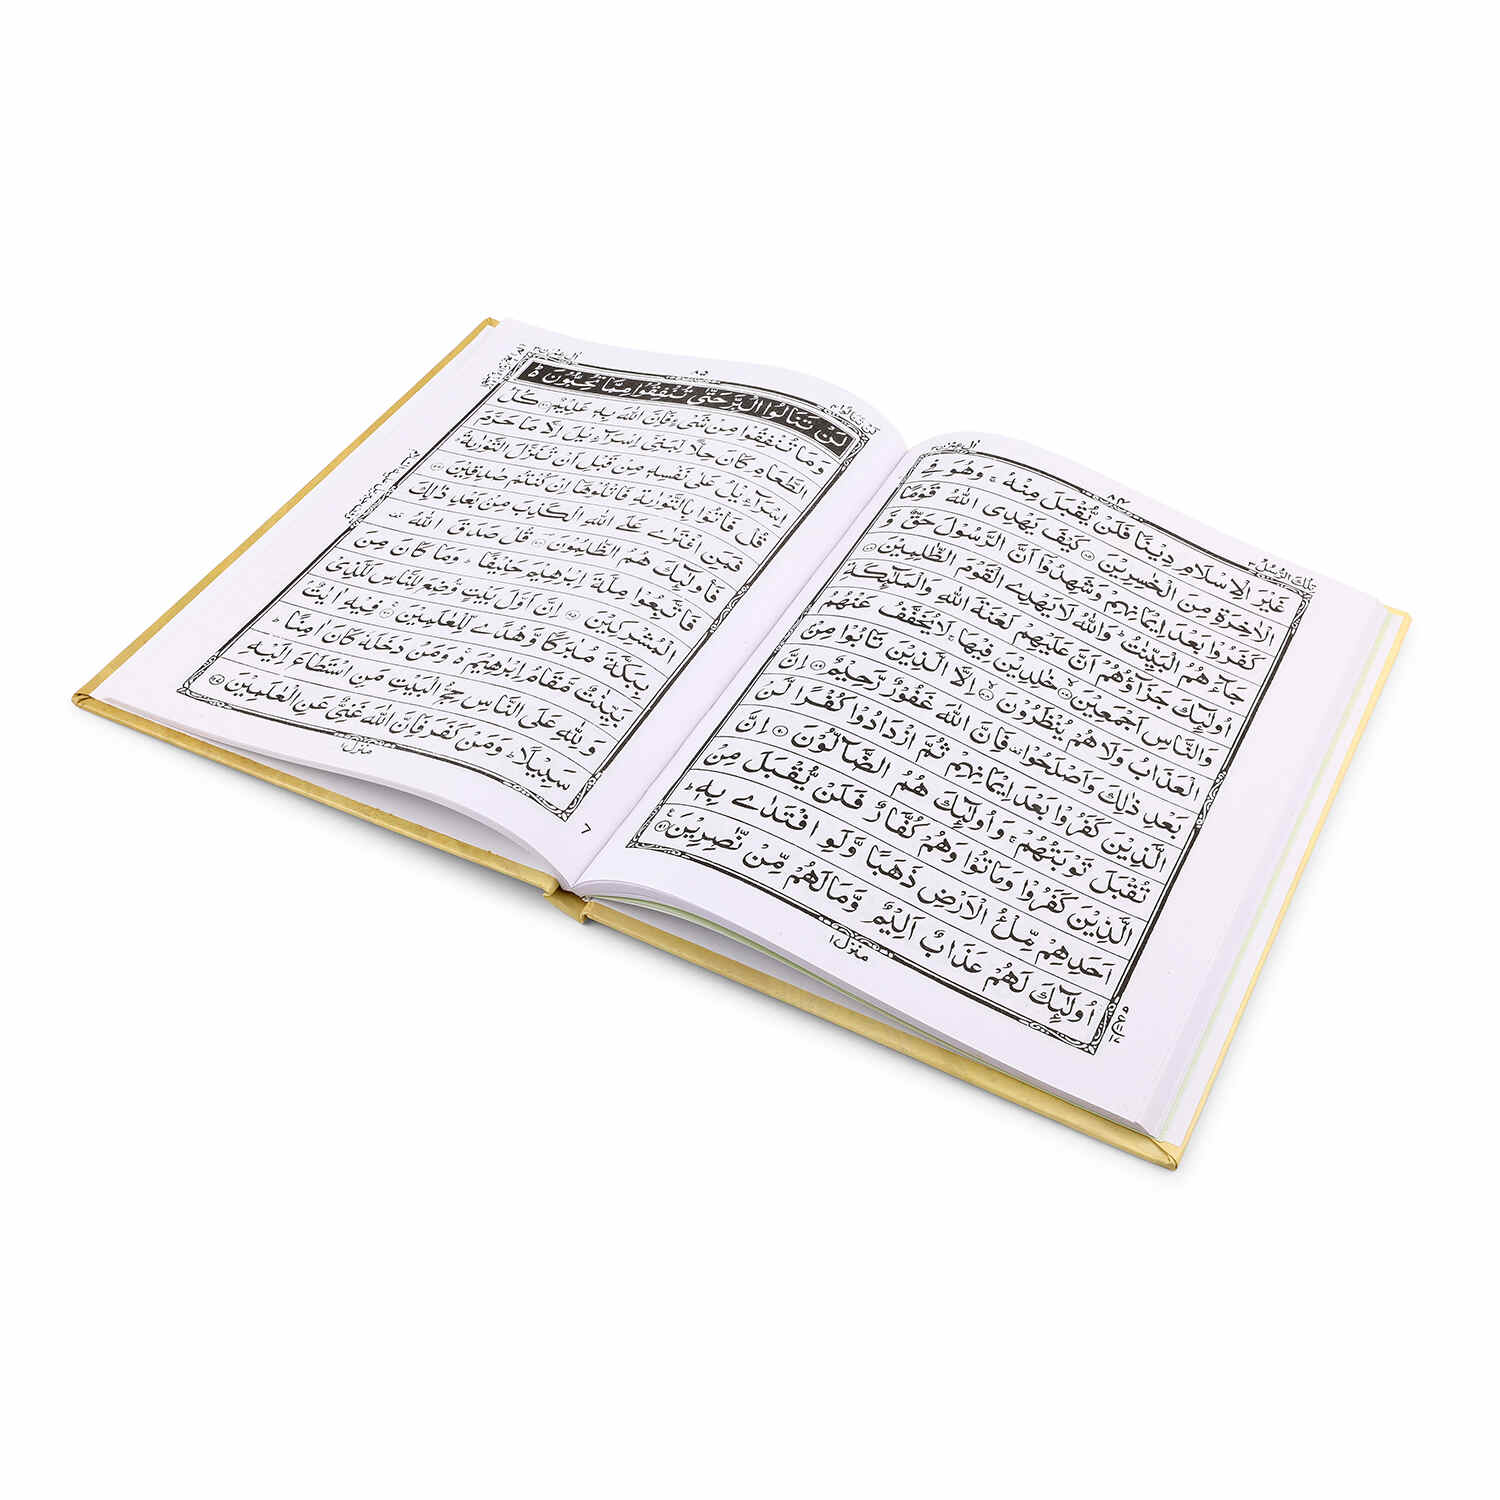 تِلْكَ الرُّسُلُ ٣
٨٤
اٰل عمرٰن ٣
غَيْرَ الْاِسْلَامِ دِيْنًا فَلَنْ يُّقْبَلَ مِنْهُ ۚ وَهُوَ فِي
الْاٰخِرَةِ مِنَ الْخٰسِرِيْنَ ۝٨٥ كَيْفَ يَهْدِى اللّٰهُ قَوْمًا
كَفَرُوْا بَعْدَ اِيْمَانِهِمْ وَشَهِدُوْٓا اَنَّ الرَّسُوْلَ حَقٌّ وَّ
جَآءَهُمُ الْبَيِّنٰتُ ؕ وَاللّٰهُ لَا يَهْدِى الْقَوْمَ الظّٰلِمِيْنَ ۝٨٦
اُولٰٓئِكَ جَزَآؤُهُمْ اَنَّ عَلَيْهِمْ لَعْنَةَ اللّٰهِ وَالْمَلٰٓئِكَةِ
وَالنَّاسِ اَجْمَعِيْنَ ۝٨٧ خٰلِدِيْنَ فِيْهَا ۚ لَا يُخَفَّفُ عَنْهُمُ
الْعَذَابُ وَلَا هُمْ يُنْظَرُوْنَ ۝٨٨ اِلَّا الَّذِيْنَ تَابُوْا مِنْۢ
بَعْدِ ذٰلِكَ وَاَصْلَحُوْا فَاِنَّ اللّٰهَ غَفُوْرٌ رَّحِيْمٌ ۝٨٩ اِنَّ
الَّذِيْنَ كَفَرُوْا بَعْدَ اِيْمَانِهِمْ ثُمَّ ازْدَادُوْا كُفْرًا لَّنْ
تُقْبَلَ تَوْبَتُهُمْ ۚ وَاُولٰٓئِكَ هُمُ الضَّآلُّوْنَ ۝٩٠ اِنَّ
الَّذِيْنَ كَفَرُوْا وَمَاتُوْا وَهُمْ كُفَّارٌ فَلَنْ يُّقْبَلَ مِنْ
اَحَدِهِمْ مِّلْءُ الْاَرْضِ ذَهَبًا وَّلَوِ افْتَدٰى بِهٖ ؕ
اُولٰٓئِكَ لَهُمْ عَذَابٌ اَلِيْمٌ وَّمَا لَهُمْ مِّنْ نّٰصِرِيْنَ ۝٩١
منزل ١
لن تنالوا ٤
٨٥
اٰل عمرٰن ٣
لَنْ تَنَالُوا الْبِرَّ حَتّٰى تُنْفِقُوْا مِمَّا تُحِبُّوْنَ ؕ
وَمَا تُنْفِقُوْا مِنْ شَىْءٍ فَاِنَّ اللّٰهَ بِهٖ عَلِيْمٌ ۝٩٢ كُلُّ
الطَّعَامِ كَانَ حِلًّا لِّبَنِىْٓ اِسْرَآءِيْلَ اِلَّا مَا حَرَّمَ
اِسْرَآءِيْلُ عَلٰى نَفْسِهٖ مِنْ قَبْلِ اَنْ تُنَزَّلَ التَّوْرٰىةُ ؕ
قُلْ فَاْتُوْا بِالتَّوْرٰىةِ فَاتْلُوْهَآ اِنْ كُنْتُمْ صٰدِقِيْنَ ۝٩٣
فَمَنِ افْتَرٰى عَلَى اللّٰهِ الْكَذِبَ مِنْۢ بَعْدِ ذٰلِكَ
فَاُولٰٓئِكَ هُمُ الظّٰلِمُوْنَ ۝٩٤ قُلْ صَدَقَ اللّٰهُ
فَاتَّبِعُوْا مِلَّةَ اِبْرٰهِيْمَ حَنِيْفًا ؕ وَمَا كَانَ مِنَ
الْمُشْرِكِيْنَ ۝٩٥ اِنَّ اَوَّلَ بَيْتٍ وُّضِعَ لِلنَّاسِ لَلَّذِىْ
بِبَكَّةَ مُبٰرَكًا وَّهُدًى لِّلْعٰلَمِيْنَ ۝٩٦ فِيْهِ اٰيٰتٌۢ
بَيِّنٰتٌ مَّقَامُ اِبْرٰهِيْمَ ۚ وَمَنْ دَخَلَهٗ كَانَ اٰمِنًا ؕ
وَلِلّٰهِ عَلَى النَّاسِ حِجُّ الْبَيْتِ مَنِ اسْتَطَاعَ اِلَيْهِ
سَبِيْلًا ؕ وَمَنْ كَفَرَ فَاِنَّ اللّٰهَ غَنِىٌّ عَنِ الْعٰلَمِيْنَ ۝٩٧
منزل ١
7